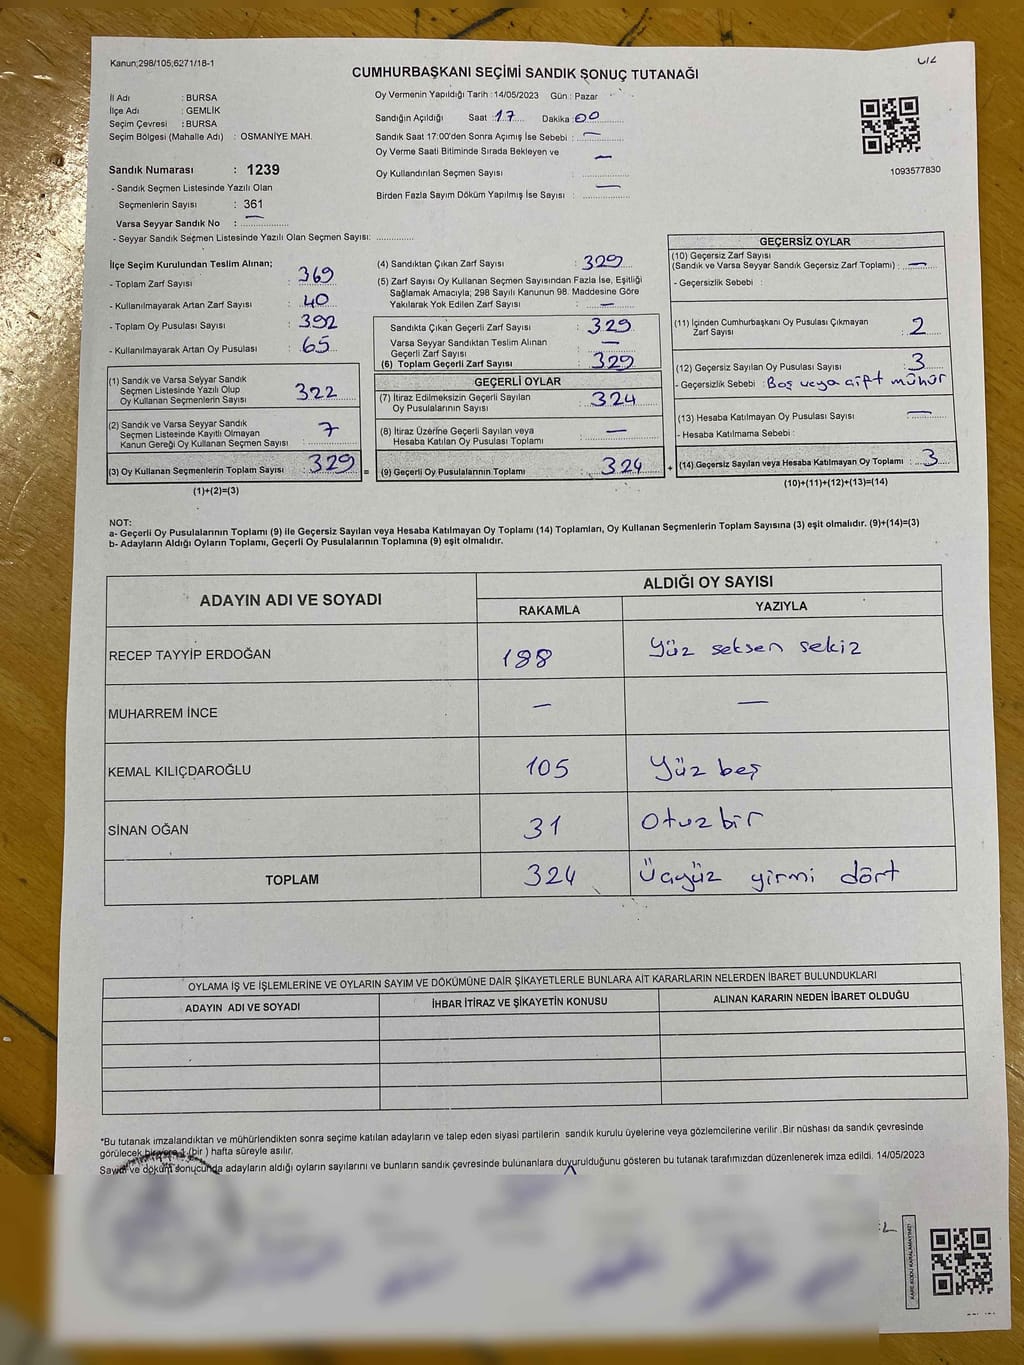 Kanun;298/105;6271/18-1
CUMHURBAŞKANI SEÇİMİ SANDIK SONUÇ TUTANAĞI
İl Adı : BURSA
İlçe Adı : GEMLİK
Seçim Çevresi : BURSA
Seçim Bölgesi (Mahalle Adı) : OSMANİYE MAH.
Sandık Numarası : 1239
- Sandık Seçmen Listesinde Yazılı Olan
Seçmenlerin Sayısı : 361
Varsa Seyyar Sandık No : —
- Seyyar Sandık Seçmen Listesinde Yazılı Olan Seçmen Sayısı:
Oy Vermenin Yapıldığı Tarih : 14/05/2023 Gün : Pazar
Sandığın Açıldığı Saat : 17 Dakika : 00
Sandık Saat 17:00'den Sonra Açımış İse Sebebi : —
Oy Verme Saati Bitiminde Sırada Bekleyen ve
Oy Kullandırılan Seçmen Sayısı : —
Birden Fazla Sayım Döküm Yapılmış İse Sayısı : —
1093577830
İlçe Seçim Kurulundan Teslim Alınan;
- Toplam Zarf Sayısı : 369
- Kullanılmayarak Artan Zarf Sayısı : 40
- Toplam Oy Pusulası Sayısı : 392
- Kullanılmayarak Artan Oy Pusulası : 65
(1) Sandık ve Varsa Seyyar Sandık
Seçmen Listesinde Yazılı Olup
Oy Kullanan Seçmenlerin Sayısı : 322
(2) Sandık ve Varsa Seyyar Sandık
Seçmen Listesinde Kayıtlı Olmayan
Kanun Gereği Oy Kullanan Seçmen Sayısı : 7
(3) Oy Kullanan Seçmenlerin Toplam Sayısı : 329
(1)+(2)=(3)
(4) Sandıktan Çıkan Zarf Sayısı : 329
(5) Zarf Sayısı Oy Kullanan Seçmen Sayısından Fazla İse, Eşitliği
Sağlamak Amacıyla; 298 Sayılı Kanunun 98. Maddesine Göre
Yakılarak Yok Edilen Zarf Sayısı : —
Sandıkta Çıkan Geçerli Zarf Sayısı : 329
Varsa Seyyar Sandıktan Teslim Alınan
Geçerli Zarf Sayısı : —
(6) Toplam Geçerli Zarf Sayısı : 329
GEÇERLİ OYLAR
(7) İtiraz Edilmeksizin Geçerli Sayılan
Oy Pusulalarının Sayısı : 324
(8) İtiraz Üzerine Geçerli Sayılan veya
Hesaba Katılan Oy Pusulası Toplamı : —
= (9) Geçerli Oy Pusulalarının Toplamı : 324
GEÇERSİZ OYLAR
(10) Geçersiz Zarf Sayısı
(Sandık ve Varsa Seyyar Sandık Geçersiz Zarf Toplamı) : —
- Geçersizlik Sebebi :
(11) İçinden Cumhurbaşkanı Oy Pusulası Çıkmayan
Zarf Sayısı : 2
(12) Geçersiz Sayılan Oy Pusulası Sayısı : 3
- Geçersizlik Sebebi : Boş veya çift mühür
(13) Hesaba Katılmayan Oy Pusulası Sayısı : —
- Hesaba Katılmama Sebebi :
+ (14) Geçersiz Sayılan veya Hesaba Katılmayan Oy Toplamı : 3
(10)+(11)+(12)+(13)=(14)
NOT:
a- Geçerli Oy Pusulalarının Toplamı (9) ile Geçersiz Sayılan veya Hesaba Katılmayan Oy Toplamı (14) Toplamları, Oy Kullanan Seçmenlerin Toplam Sayısına (3) eşit olmalıdır. (9)+(14)=(3)
b- Adayların Aldığı Oyların Toplamı, Geçerli Oy Pusulalarının Toplamına (9) eşit olmalıdır.
ADAYIN ADI VE SOYADI
ALDIĞI OY SAYISI
RAKAMLA YAZIYLA
RECEP TAYYİP ERDOĞAN 188 Yüz seksen sekiz
MUHARREM İNCE — —
KEMAL KILIÇDAROĞLU 105 Yüz beş
SİNAN OĞAN 31 Otuzbir
TOPLAM 324 Üçyüz yirmi dört
OYLAMA İŞ VE İŞLEMLERİNE VE OYLARIN SAYIM VE DÖKÜMÜNE DAİR ŞİKAYETLERLE BUNLARA AİT KARARLARIN NELERDEN İBARET BULUNDUKLARI
ADAYIN ADI VE SOYADI İHBAR İTİRAZ VE ŞİKAYETİN KONUSU ALINAN KARARIN NEDEN İBARET OLDUĞU
*Bu tutanak imzalandıktan ve mühürlendikten sonra seçime katılan adayların ve talep eden siyasi partilerin sandık kurulu üyelerine veya gözlemcilerine verilir .Bir nüshası da sandık çevresinde
görülecek bir yere 1 (bir ) hafta süreyle asılır.
Sayım ve döküm sonucunda adayların aldığı oyların sayılarını ve bunların sandık çevresinde bulunanlara duyurulduğunu gösteren bu tutanak tarafımızdan düzenlenerek imza edildi. 14/05/2023
KARE KODU KARALAMAYINIZ!